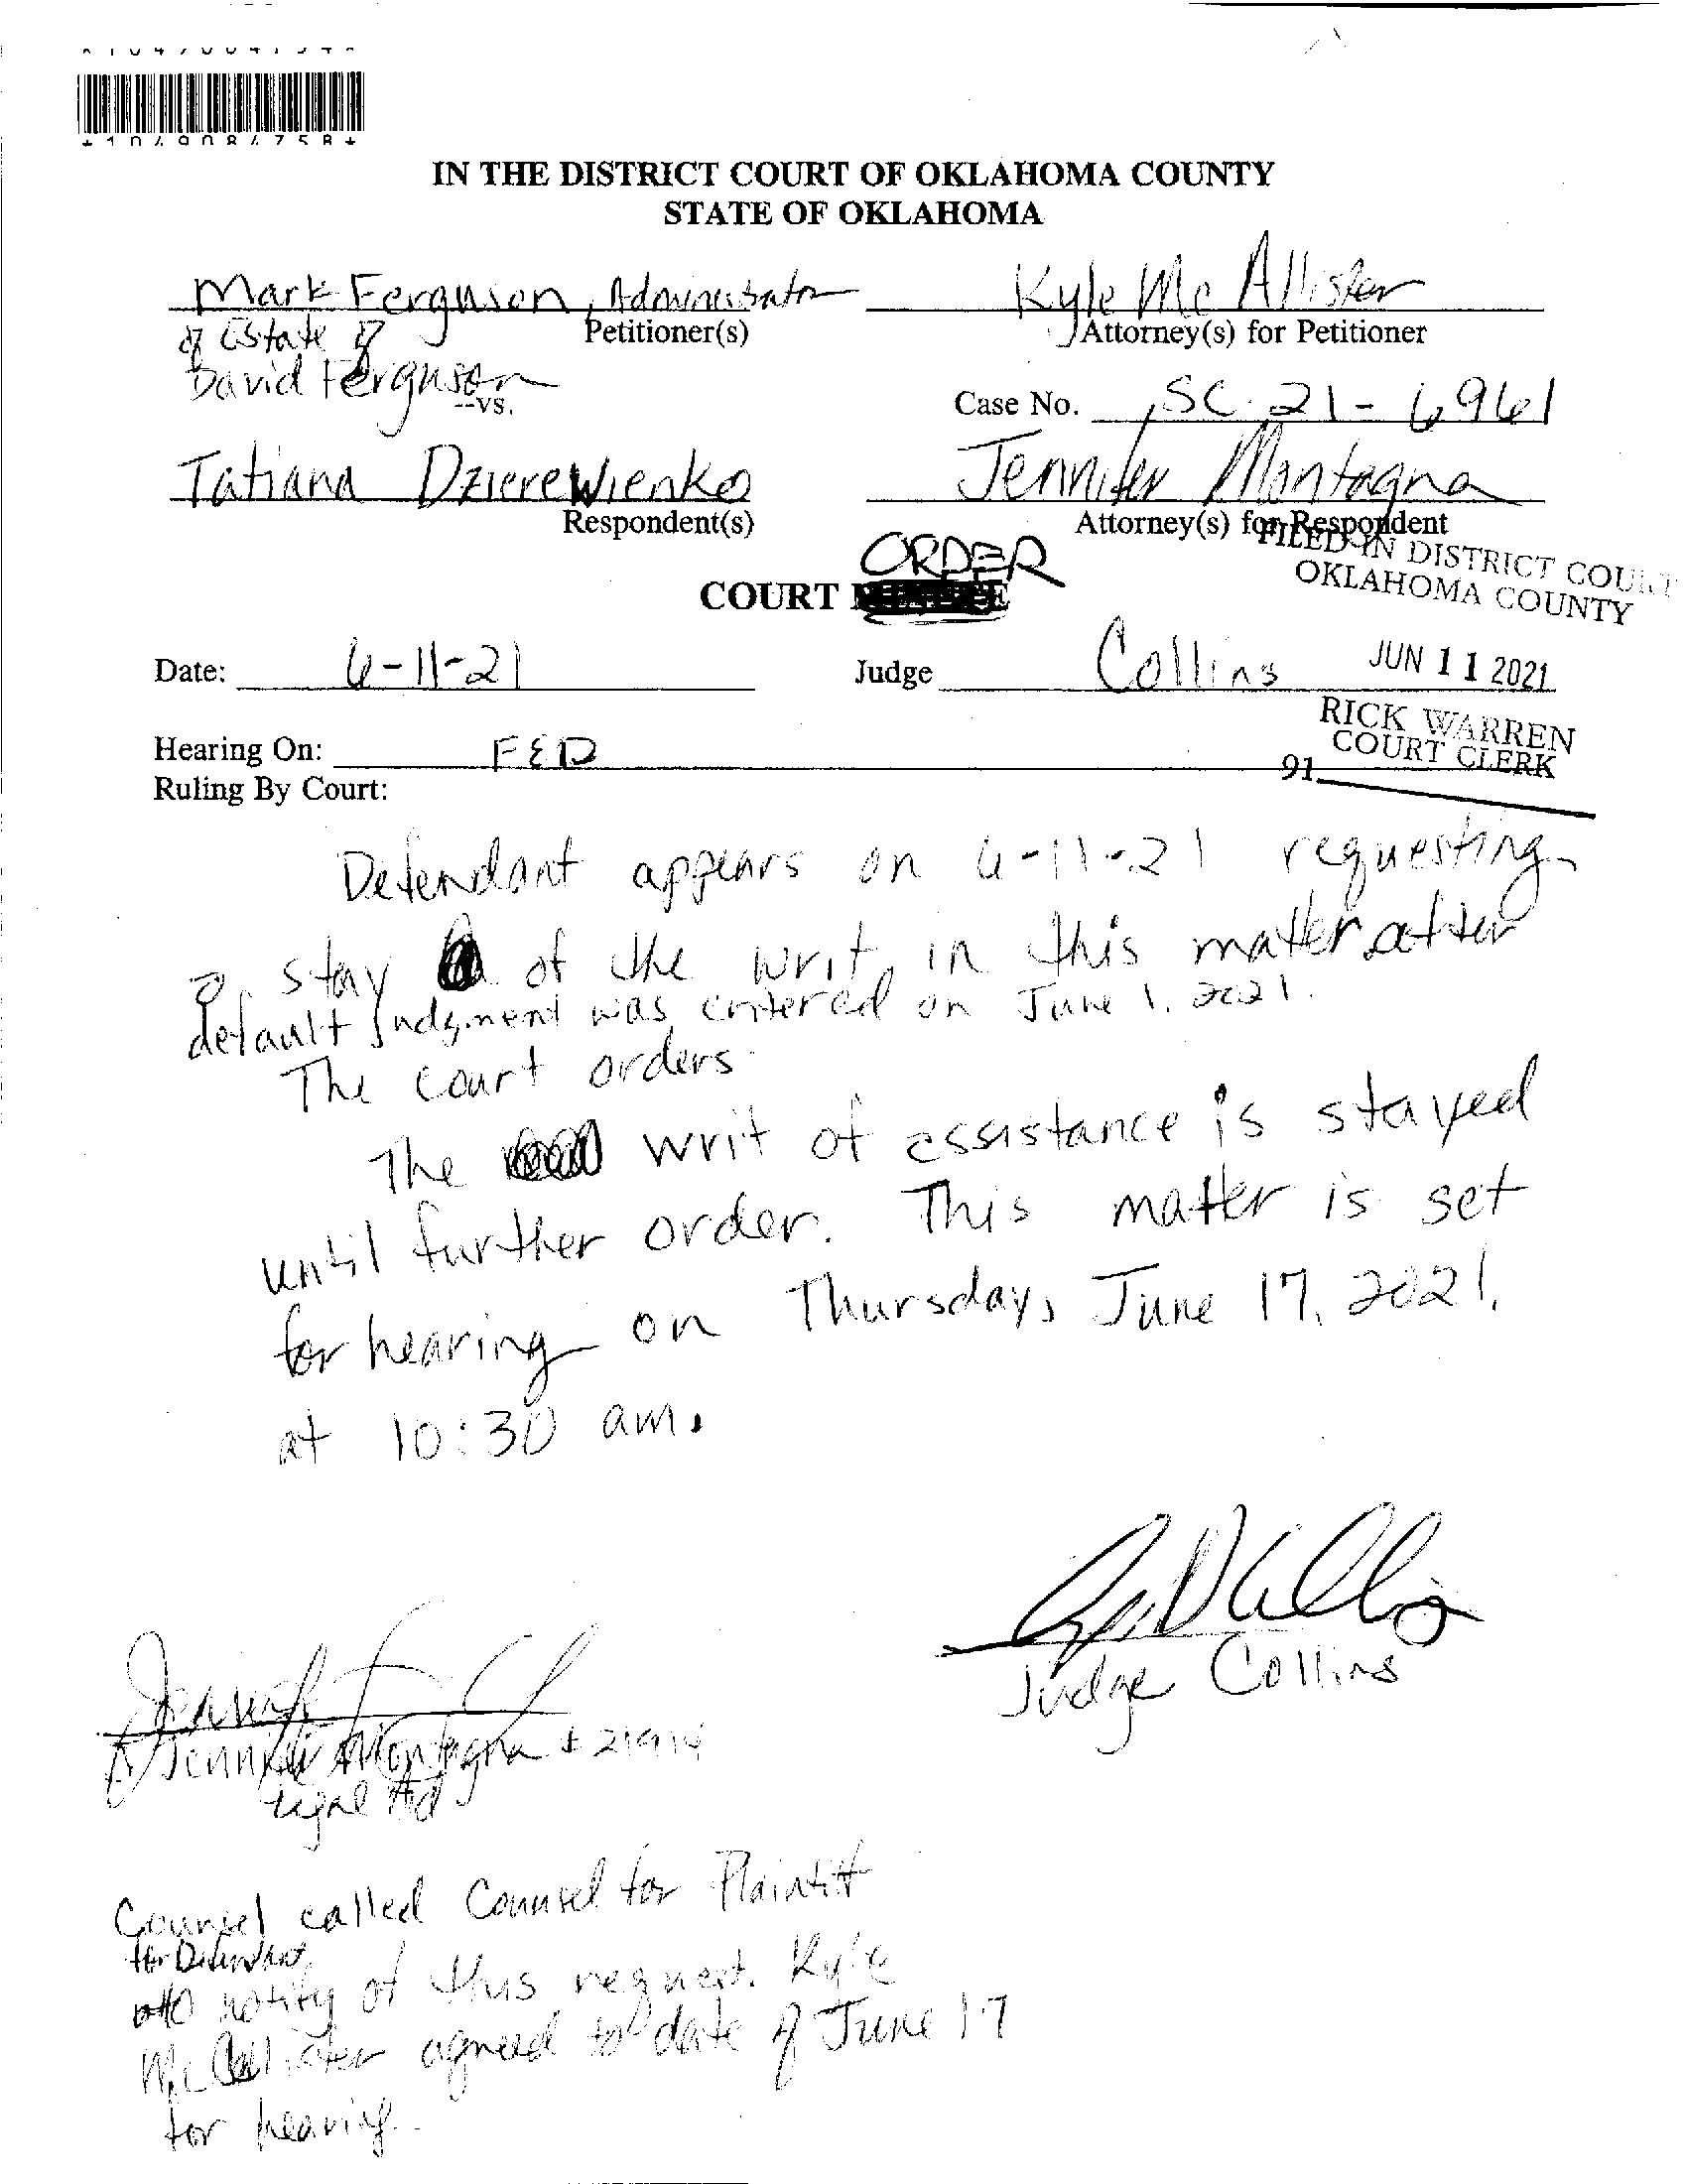 *1049084758*
IN THE DISTRICT COURT OF OKLAHOMA COUNTY
STATE OF OKLAHOMA
Mark Ferguson, Administrator
Petitioner(s)
of Estate of
David Ferguson
--vs.
Kyle Mc Allister
Attorney(s) for Petitioner
Case No. SC-21-6961
Tatiana Dzierewienko
Respondent(s)
Jennifer Montagna
Attorney(s) for Respondent
FILED IN DISTRICT COURT
OKLAHOMA COUNTY
ORDER
COURT
Date: 6-11-21
Judge Collins
JUN 11 2021
RICK WARREN
COURT CLERK
Hearing On: FED
91
Ruling By Court:
Defendant appears on 6-11-21 requesting
a stay of the writ in this matter after
default judgment was entered on June 1, 2021.
The court orders
The writ of assistance is stayed
until further order. This matter is set
for hearing on Thursday, June 17, 2021,
at 10:30 am.
Judge Collins
Jennifer Montagna # 21914
Legal Aid
Counsel called Counsel for Plaintiff
for Defendant
notify of this request. Kyle
McCallister agreed to date of June 17
for hearing.